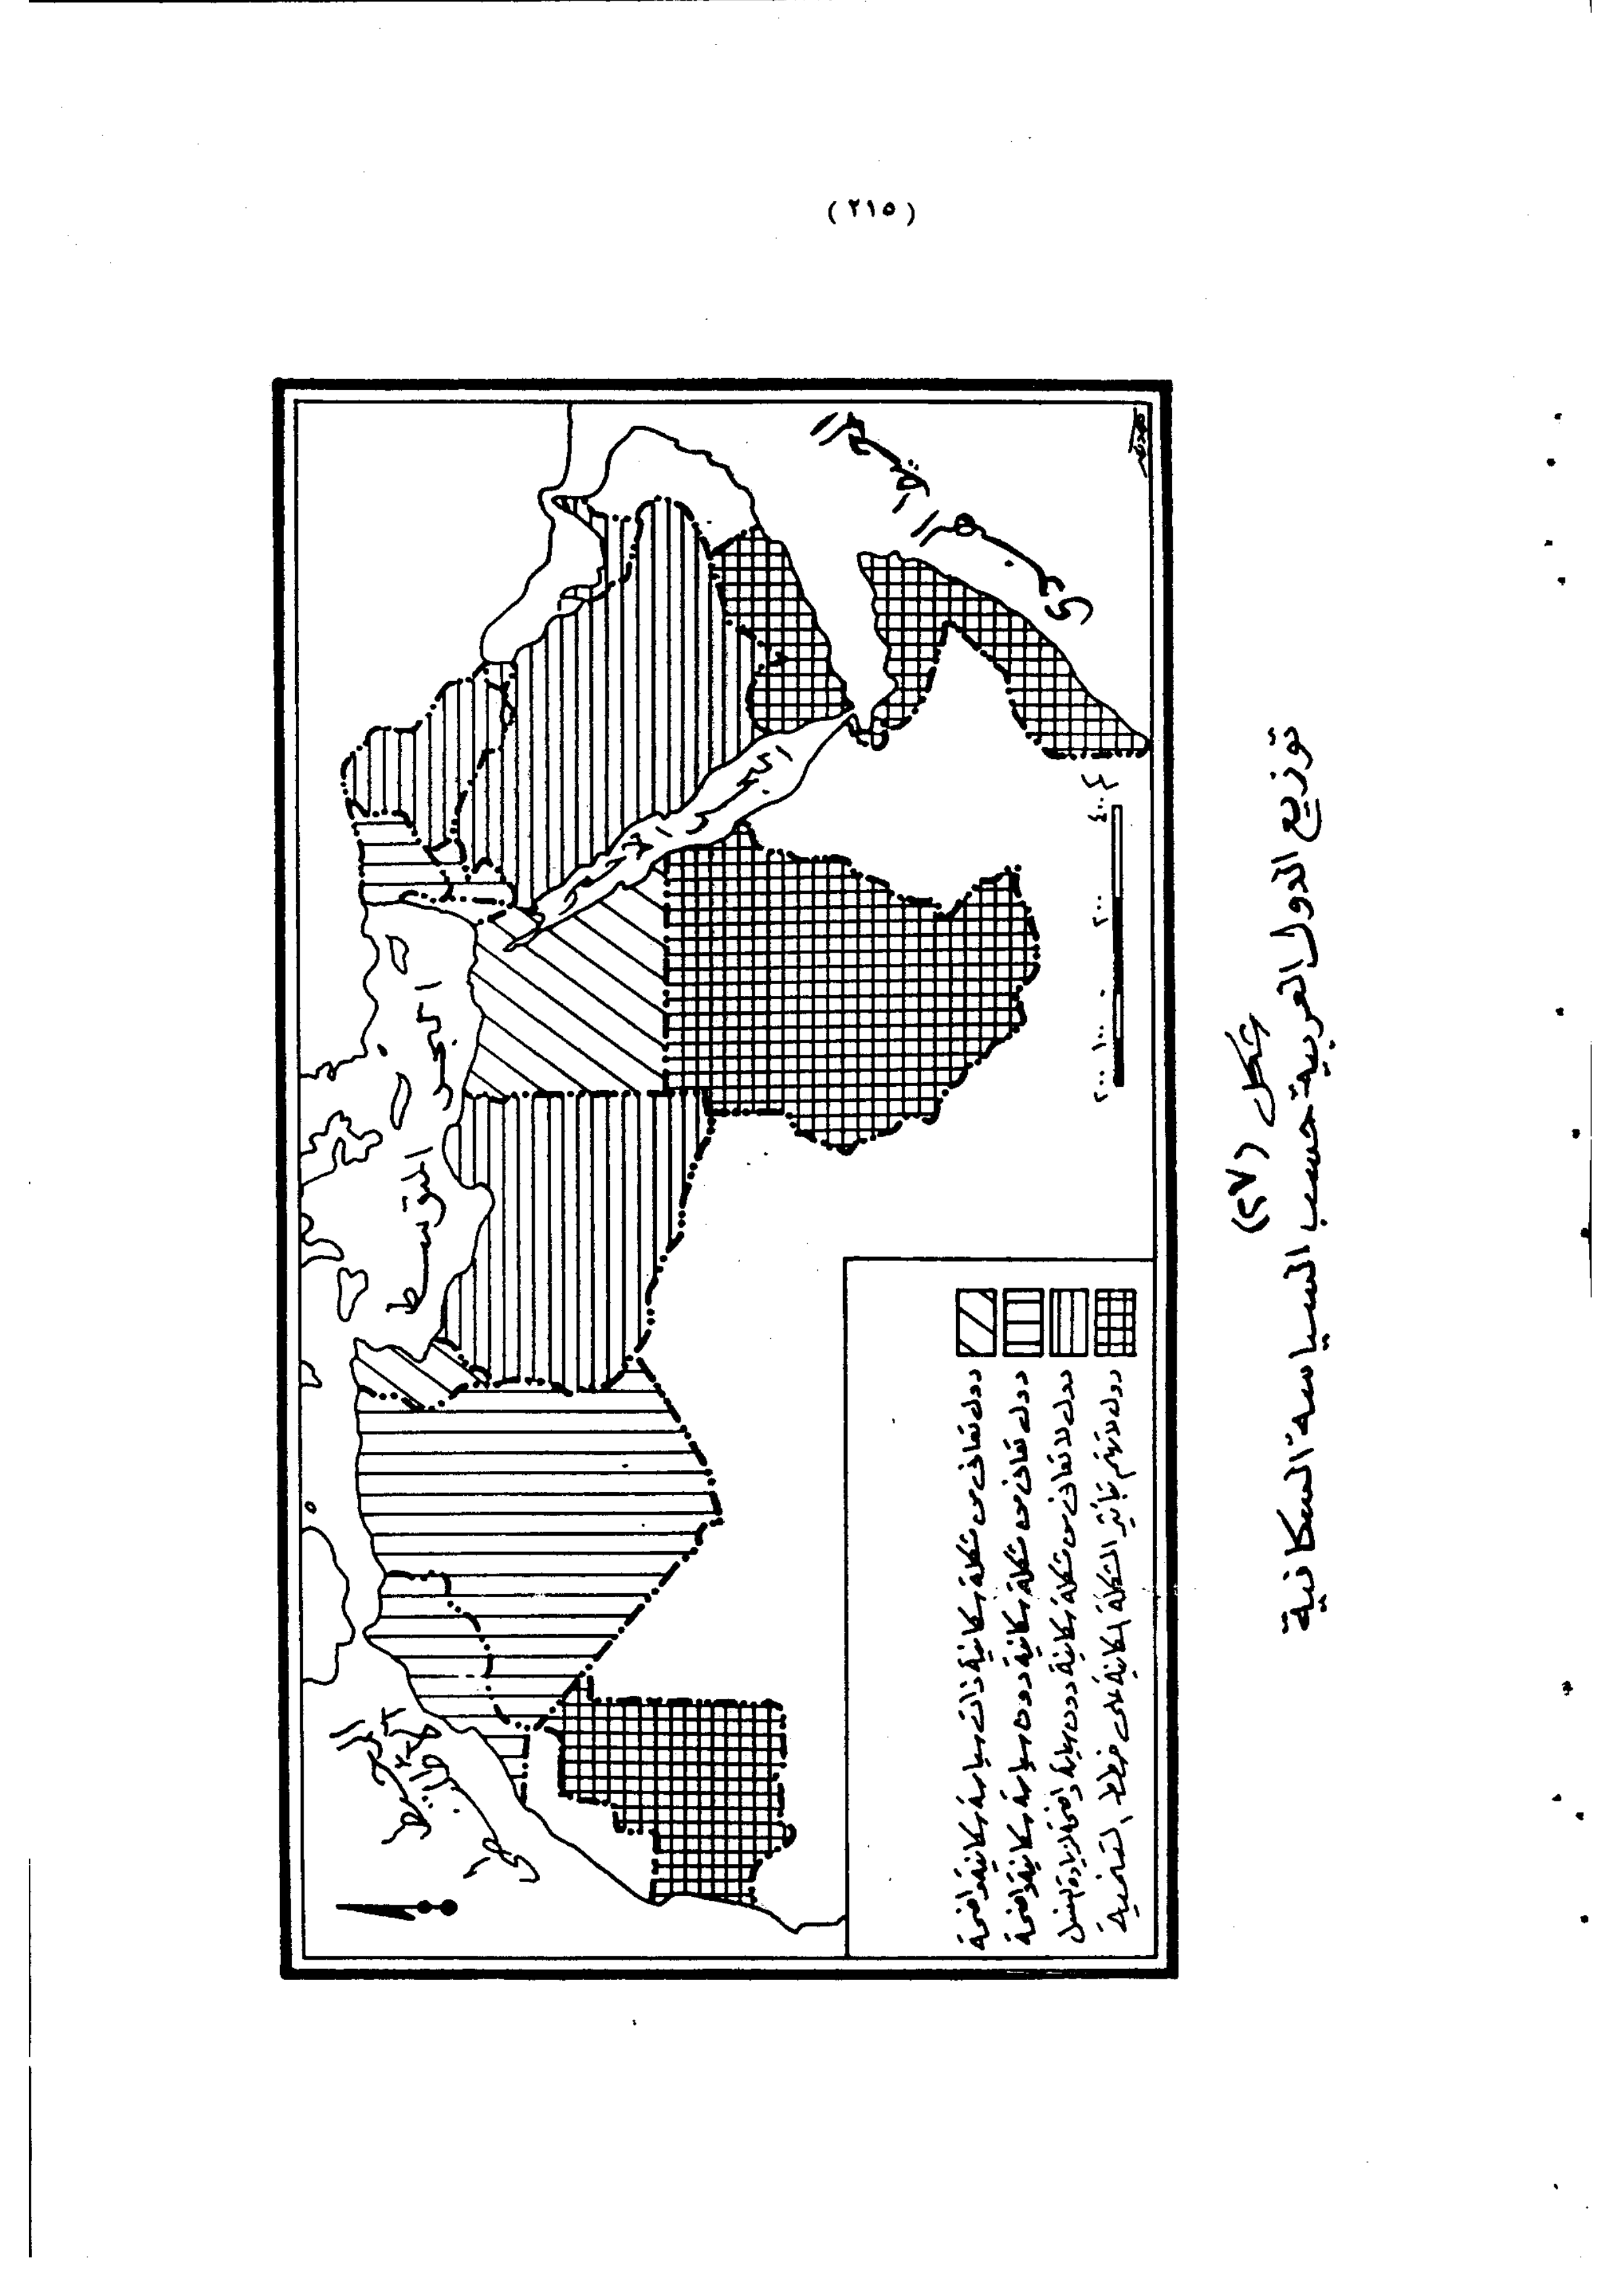 (٢١٥)
المحيط الأطلسي
البحر المتوسط
البحر الأحمر
المحيط الهندي
٢٠٠ ١٠٠ ٠ ٢٠٠ ٤٠٠
دول تعانى من مشكلة سكانية ذات سياسة سكانية واضحة
دول تعانى من مشكلة سكانية دون سياسة سكانية واضحة
دول لا تعانى من مشكلة سكانية دون سياسة واضحة لزيادة النسل
دول لا تهتم بتأثير المشكلة السكانية على خطط التنمية
شكل (٢٧)
توزيع الدول العربية حسب السياسة السكانية